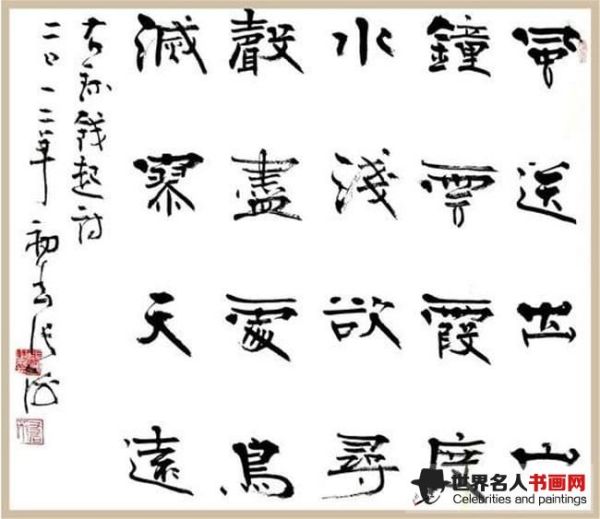 風送出山
鐘雲霞度
水淺欲尋
聲盡處鳥
滅寥天遠
錢起詩
二〇一二年初春張海
世界名人书画网
Celebrities and paintings